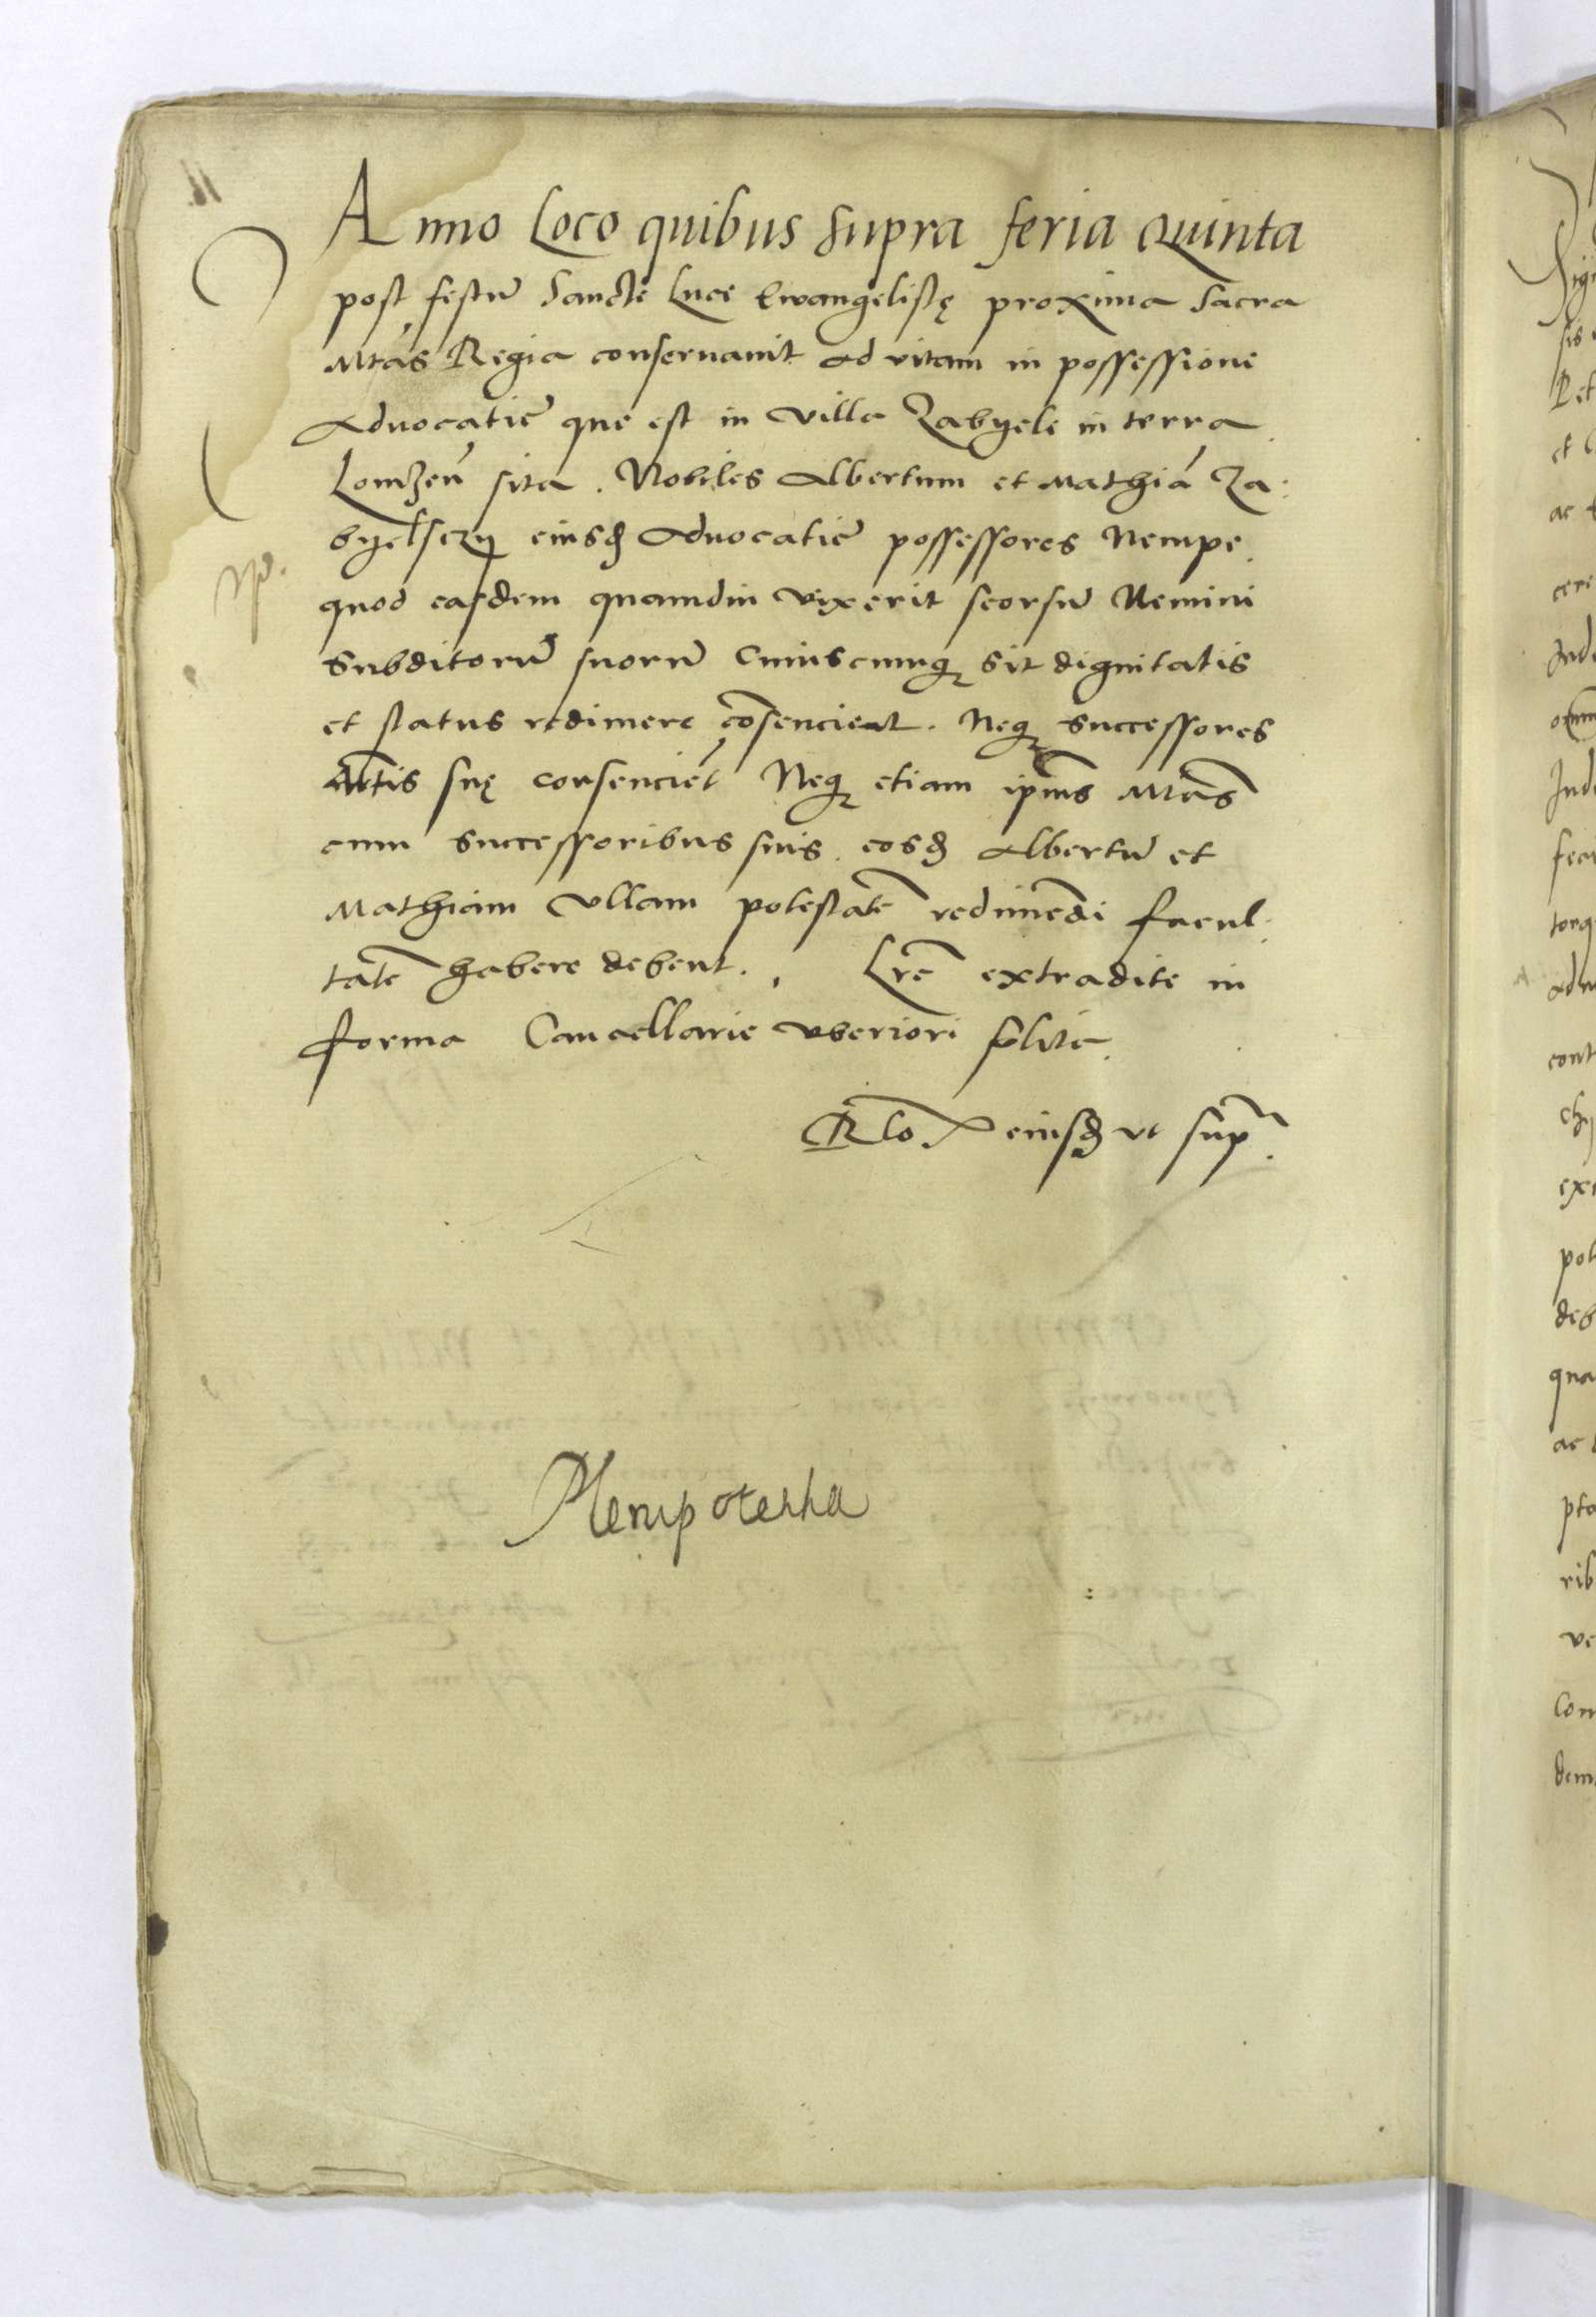 Anno Loco quibus supra feria Quinta
post festũ Sancte Luce Ewangelistę proxima Sacra
Mtás Regia conseruauit ad vitam in possessione
Aduocatie que est in Villa Zabyele in terra
Lomzeñ sita. Nobiles Albertum et Mathiã Za:
byelsczy eiusđ Aduocatie possessores Nempe
quod easdem quamdiu vixerit seorsũ Nemini
Subditorũ suorũ Cuiuscumqꝫ sit dignitatis
et status redimere cõsencient. Neqꝫ successores
Mtis suę consenciẽt Neqꝫ etiam ipius Mtas
cum successoribus suis eosđ Albertũ et
Mathiam Vllam potestatẽ redimẽdi facul
tatẽ habere debent. Lrẽ extradite in
forma Cancellarie vberiori solite.
Rlo eiusđ vt sup